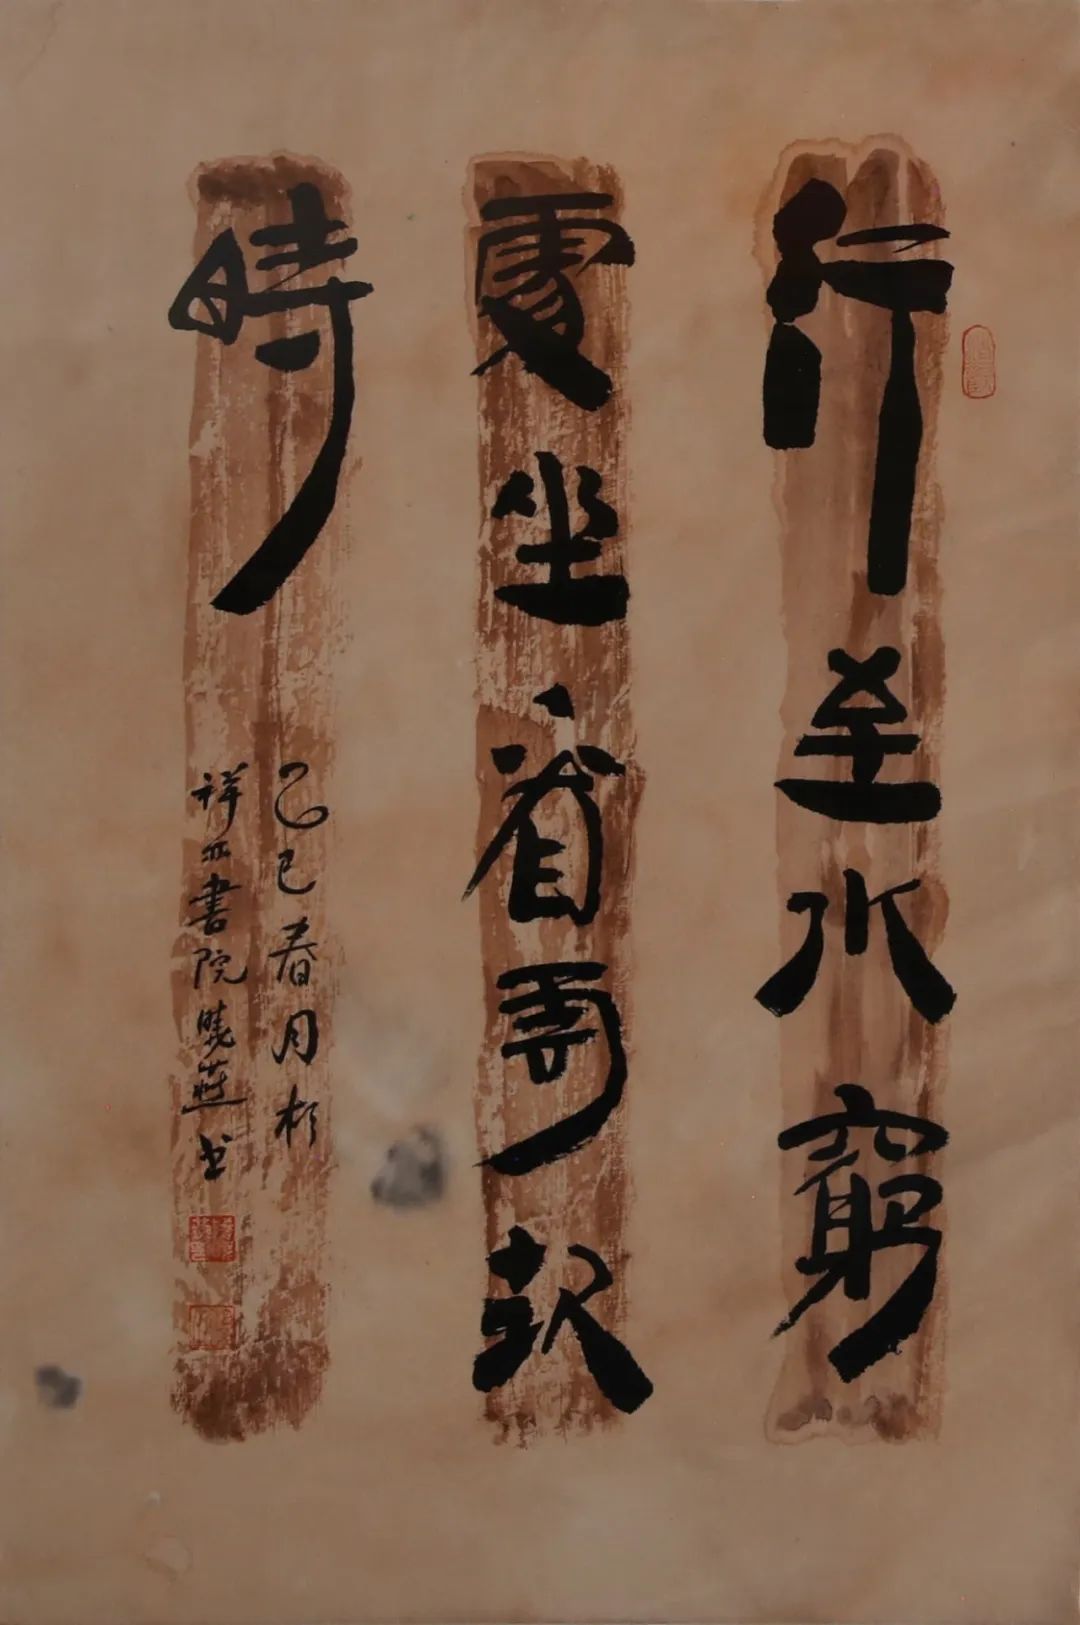 行至水窮
處坐看雲起
時
乙巳春月於
祥書院曉燕书